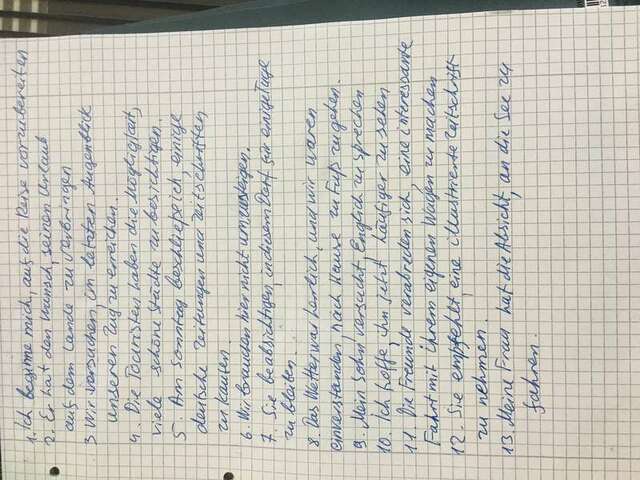 1. Ich besinne mich, auf die Reise vorzubereiten
2. Er hat den Wunsch, seinen Urlaub
auf dem Lande zu verbringen
3 Wir versuchen, im letzten Augenblick
unseren Zug zu erreichen.
4. Die Touristen haben die Mögligkait,
viele schöne Städte zu besichtigen.
5. Am Sonntag beschließe ich, einige
deutsche Zeitungen und Zeitschriften
zu kaufen
6. Wir brauchen hier nicht umzusteigen.
7. Sie beabsichtigen, in diesem Dorf für einige Tage
zu bleiben.
8. Das Wetter war herrlich, und wir waren
einverstanden, nach Hause zu Fuß zu gehen.
9. Mein Sohn versucht, Englich zu sprechen
10. Ich hoffe, ihn jetzt häufiger zu sehen
11. Die Freunde verabreden sich, eine interessante
Fahrt mit ihrem eigenen Wagen zu machen
12. Sie empfehlt, eine illustrierte Zeitschrift
zu nehmen.
13. Meine Frau hat die Absicht, an die See zu
fahren.